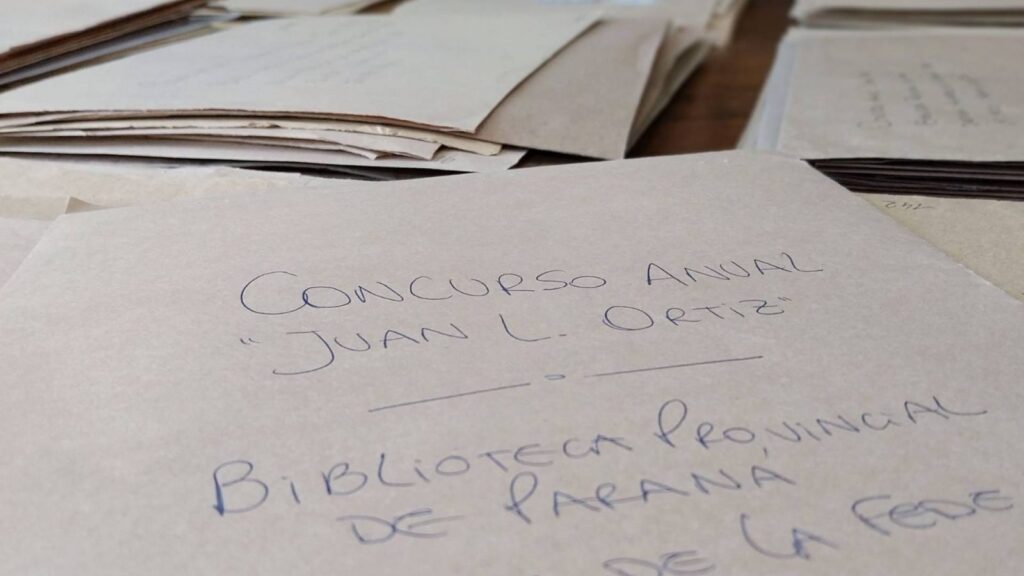 CONCURSO ANUAL
"JUAN L. ORTIZ"
BIBLIOTECA PROVINCIAL
DE PARANÁ
DE LA FEDE